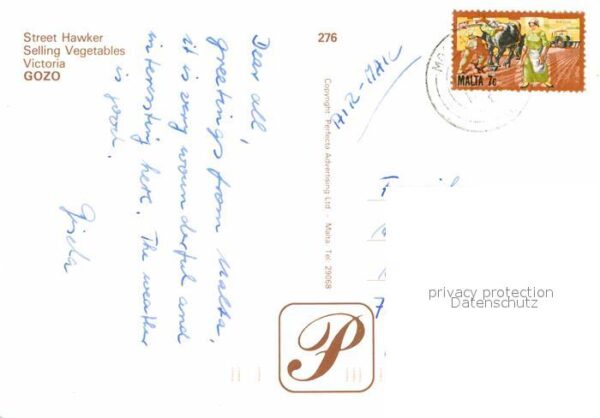 Street Hawker
Selling Vegetables
Victoria
GOZO
276
Dear all,
greetings from Malta,
it is very wounderful and
interesting here. The weather
is good.
Gisela
Copyright: Perfecto Advertising Ltd - Malta. Tel. 29068
AIR-MAIL
MALTA 7c
P
privacy protection
Datenschutz